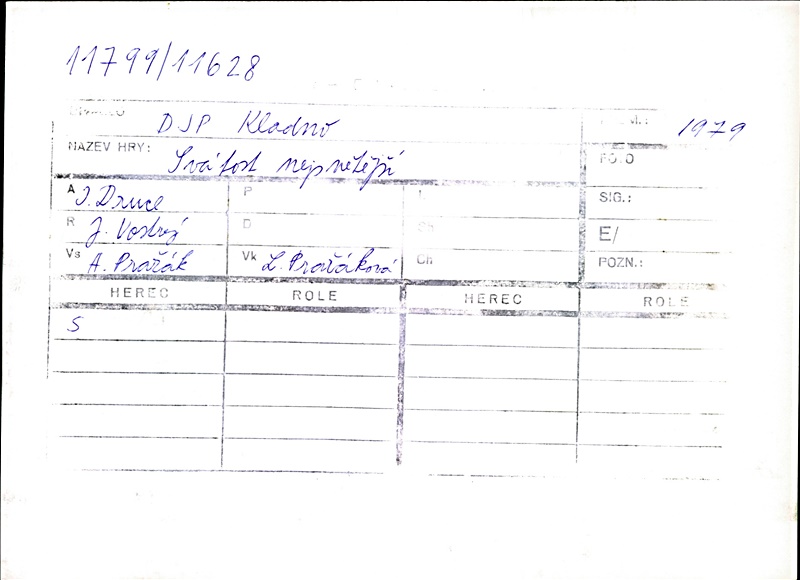 11799/11628
DIVADLO DJP Kladno PREM.: 1979
NÁZEV HRY: Svátost nejsvětější FOTO
A I. Druce P I SIG.:
R J. Vostrý D Sh E/
Vs A. Pražák Vk L. Pražáková Ch POZN.:
HEREC ROLE HEREC ROLE
S